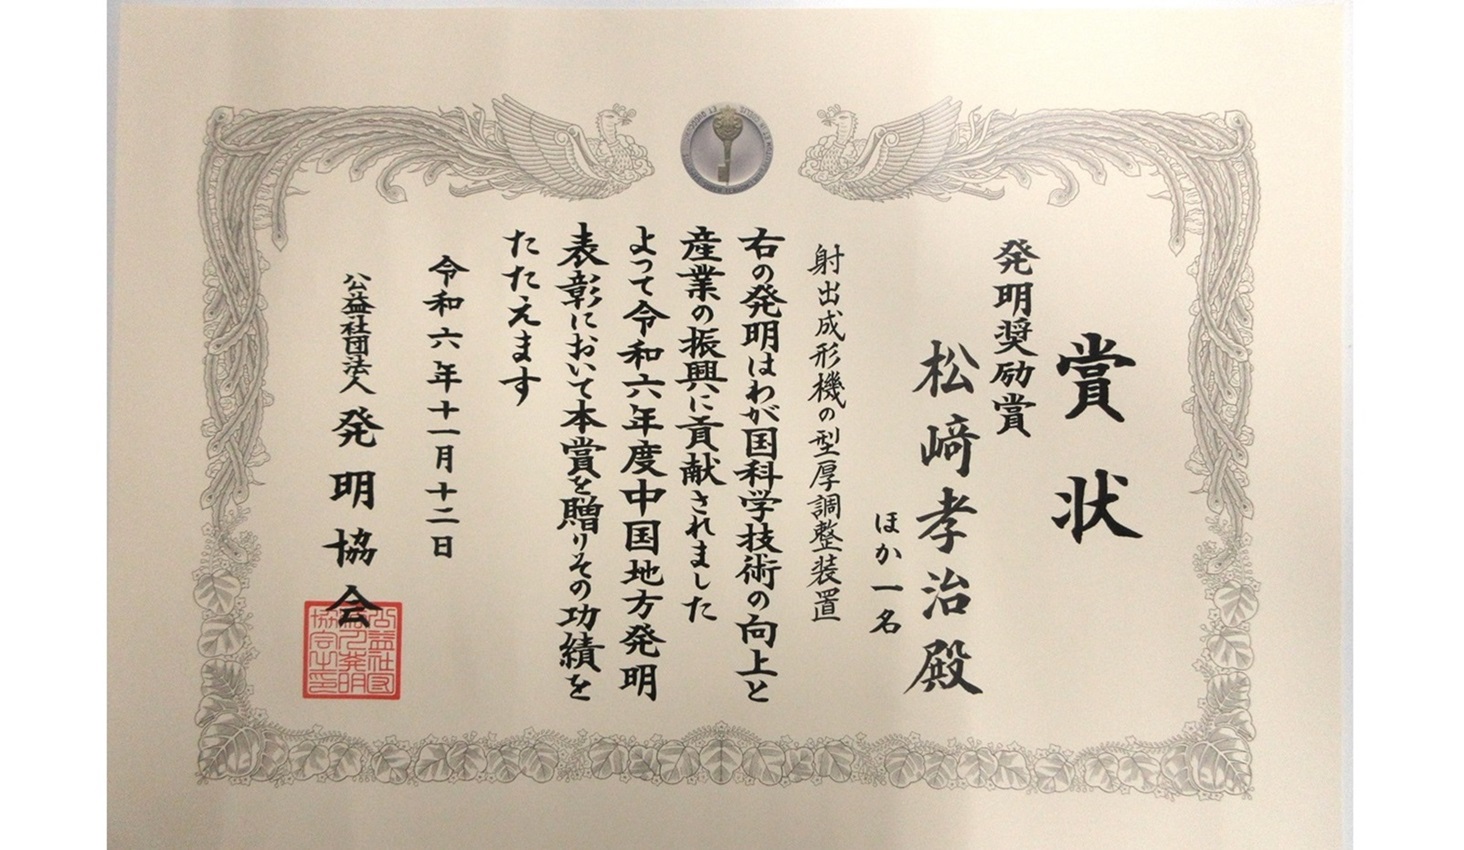 賞状
発明奨励賞
松﨑孝治殿
ほか一名
射出成形機の型厚調整装置
右の発明はわが国科学技術の向上と
産業の振興に貢献されました
よって令和六年度中国地方発明
表彰において本賞を贈りその功績を
たたえます
令和六年十一月十二日
公益社団法人発明協会
公益社団
法人発明
協会之印